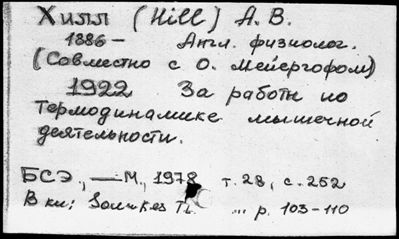 Хилл (Hill) А. В.
1886 – Англ. физиолог.
(Совместно с О. Мейергофом)
1922 За работы по
термодинамике мышечной
деятельности.
БСЭ, — М., 1978 т. 28, с. 252
В кн: T. ... p. 103–110